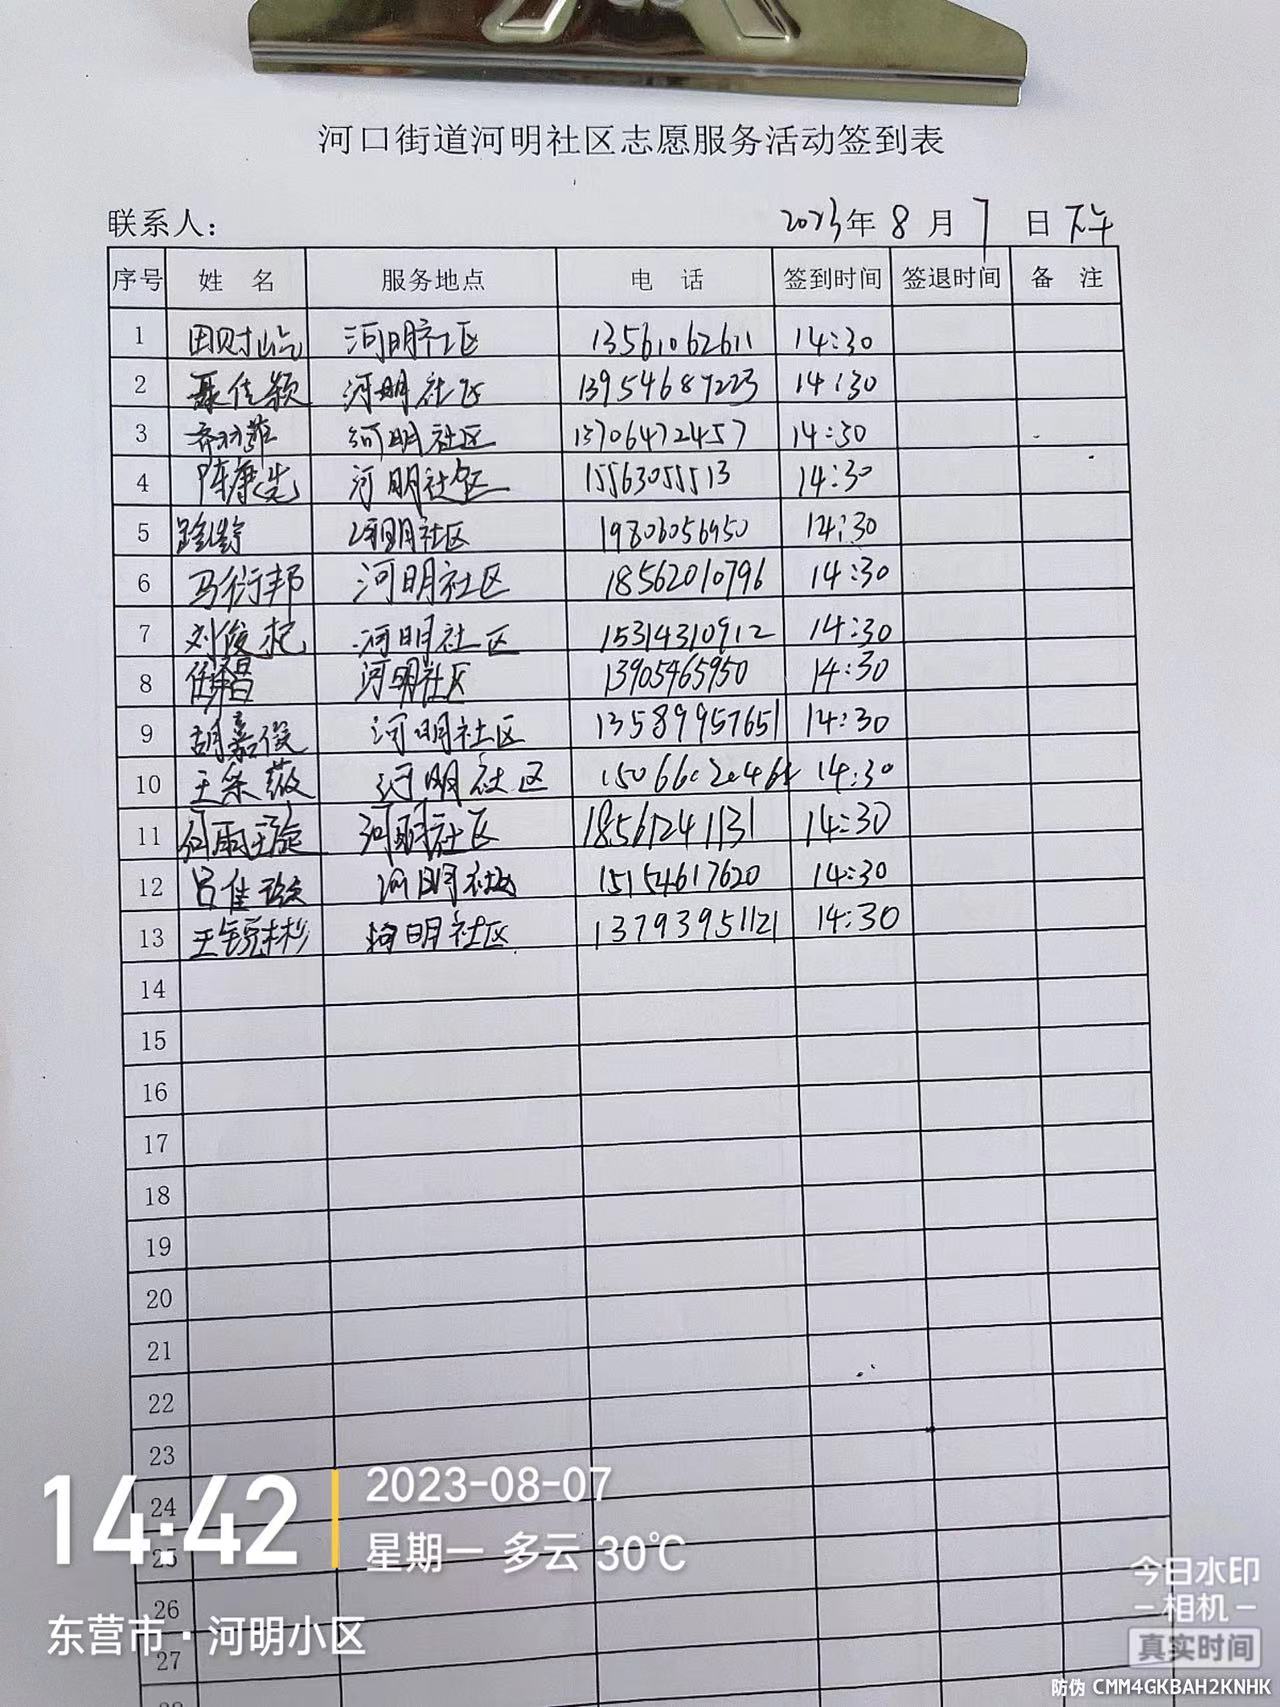 河口街道河明社区志愿服务活动签到表
联系人： 2023年 8 月 7 日 下午
序号 姓 名 服务地点 电 话 签到时间 签退时间 备 注
1 河明社区 13561062611 14:30
2 聂佳颖 河明社区 13954687223 14:30
3 河明社区 13706472457 14:30
4 陈康先 河明社区 15563055513 14:30
5 河明社区 19806056950 14:30
6 马衍邦 河明社区 18562010796 14:30
7 刘俊杞 河明社区 15314310912 14:30
8 河明社区 13905465950 14:30
9 胡嘉俊 河明社区 13589957651 14:30
10 河明社区 14:30
11 何雨璇 河明社区 18561241131 14:30
12 吕佳 河明社区 15154617620 14:30
13 王锐彬 河明社区 13793951121 14:30
14
15
16
17
18
19
20
21
22
23
24
25
26
27
14:42
2023-08-07
星期一 多云 30℃
东营市·河明小区
今日水印
-相机-
真实时间
防伪 CMM4GKBAH2KNHK